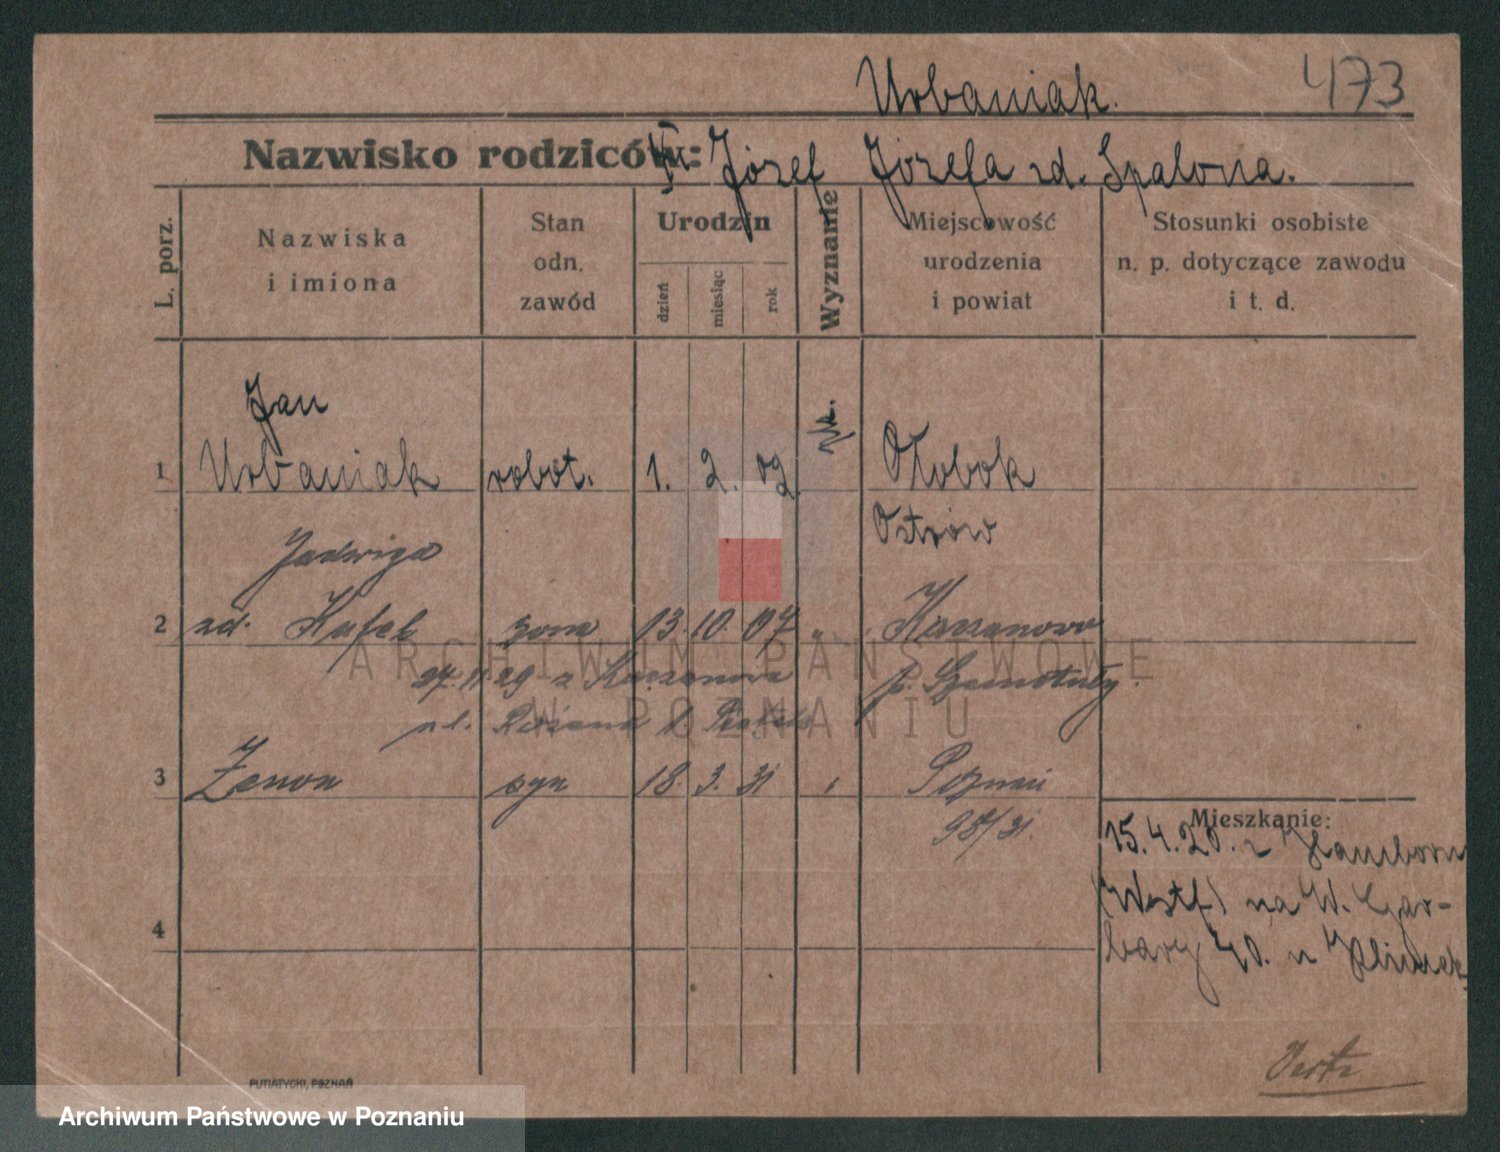 Urbaniak. 473
Nazwisko rodziców: Józef Józefa zd. Spalona.
L. porz.
Nazwiska
i imiona
Stan
odn.
zawód
Urodzin
dzień
miesiąc
rok
Wyznanie
Miejscowość
urodzenia
i powiat
Stosunki osobiste
n. p. dotyczące zawodu
i t. d.
Jan
1 Urbaniak robot. 1. 2. 09. Ołobok
Ostrów
Jadwiga
2 zd. żona 13. 10. 07 „ Kazanowo
27.11.29 z Kazanowa p. Szamotuły.
ul.
3 Zenon syn 18. 3. 31 Poznań
98/31.
Mieszkanie:
15.4.20. z Hamborn
(Westf) na W. Gar-
bary 40. u Klimek
4
PUTIATYCKI, POZNAŃ
ARCHIWUM PAŃSTWOWE
W POZNANIU
Archiwum Państwowe w Poznaniu